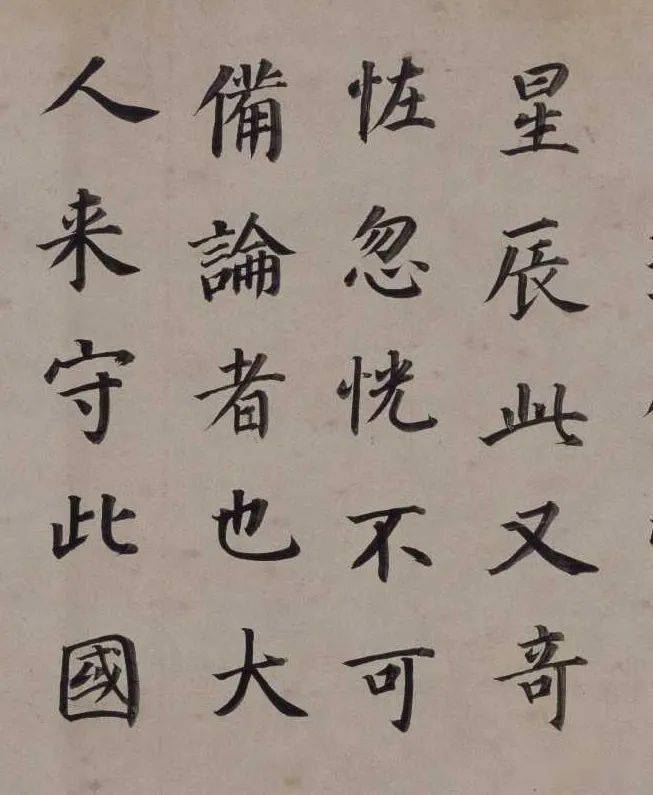 星辰此又奇
恠忽恍不可
備論者也大
人来守此國